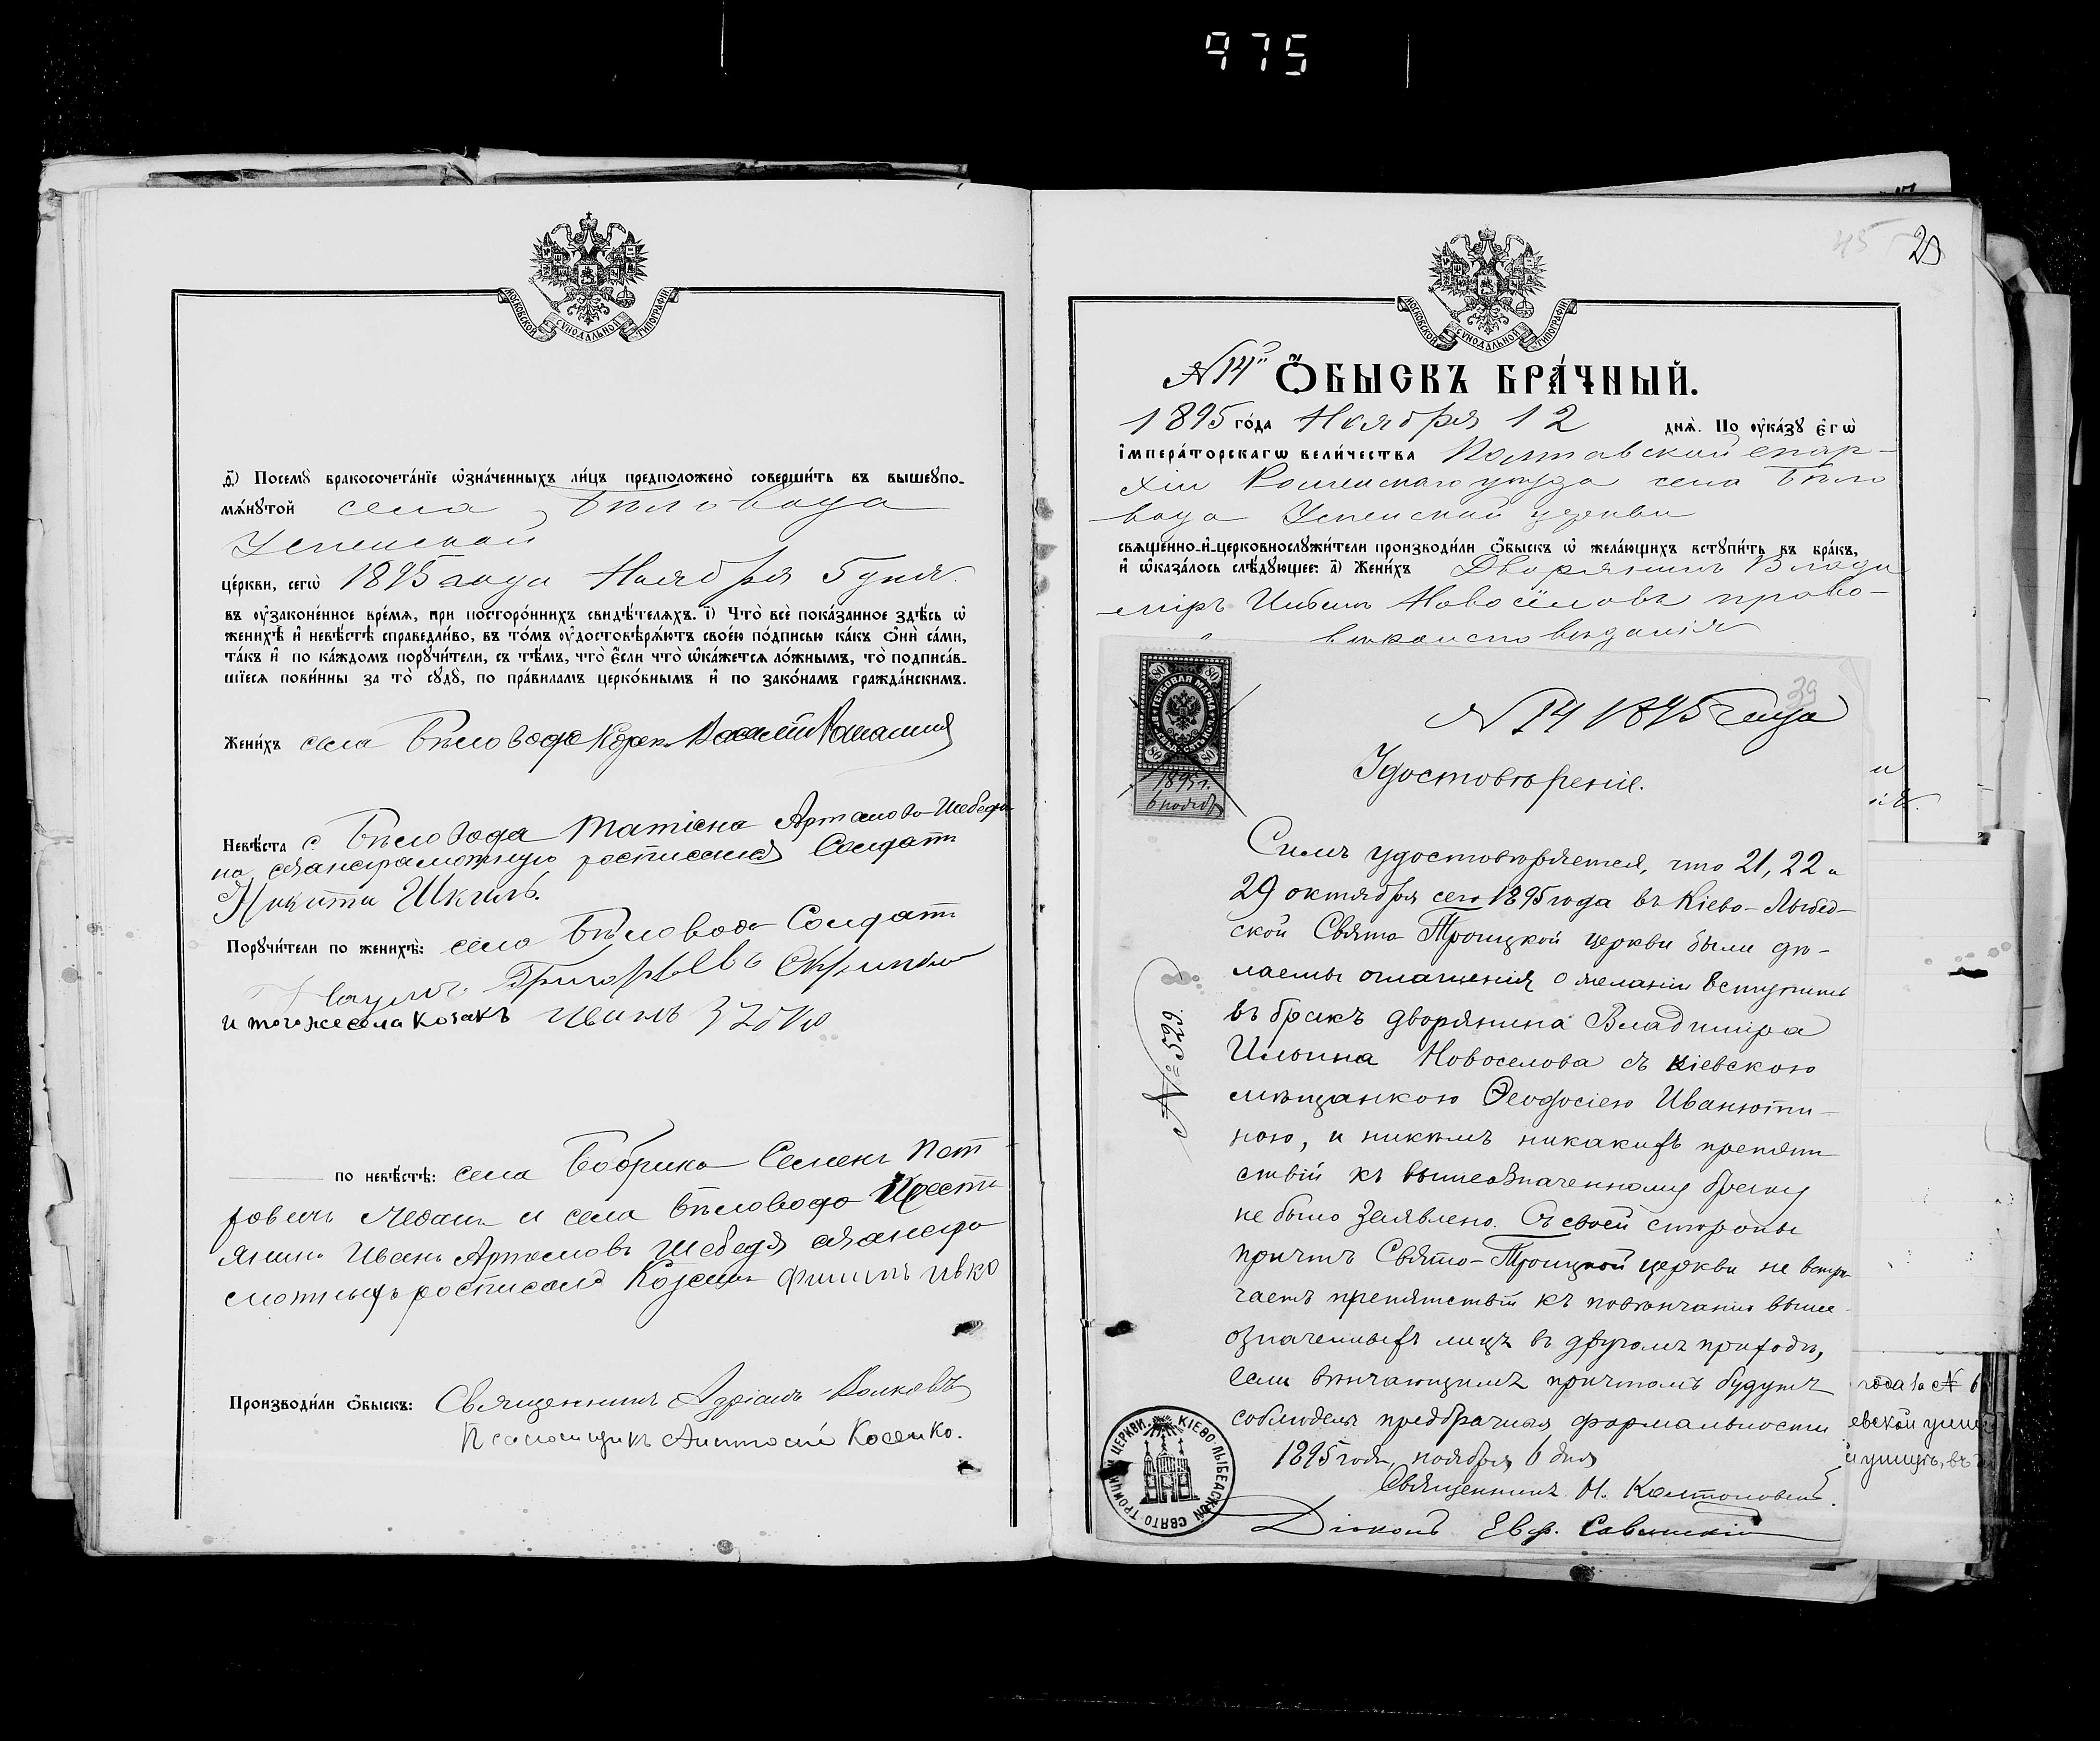 975
МОСКОВСКОЙ СѴНОДАЛЬНОЙ ТИПОГРАФІИ
д҃) Посемꙋ̀ бракосочета́нїе ѡ҆зна́ченныхъ ли́цъ предположено̀ соверши́ть въ вышеꙋпо-
мѧ́нꙋтой села Бѣловода
Успенской
це́ркви, сегѡ̀ 1895 года Ноября 5 дня
въ ᲂу҆законе́нное вре́мѧ, при посторо́ннихъ свидѣ́телѧхъ. і҃) Что̀ всѐ пока́занное здѣ́сь ѡ҆
женихѣ̀ и҆ невѣ́стѣ справедли́во, въ то́мъ ᲂу҆достовѣрѧ́ютъ свое́ю по́дписью ка́къ ѻ҆нѝ са́ми,
та́къ и҆ по ка́ждомъ порꙋчи́тели, съ тѣ́мъ, что̀ є҆́сли что̀ ѡ҆ка́жетсѧ ло́жнымъ, то̀ подписа́в-
шїесѧ пови́нны за то̀ сꙋдꙋ̀, по пра́виламъ церко́внымъ и҆ по зако́намъ гражда́нскимъ.
Жени́хъ села Бѣловода Козак
Невѣ́ста с Бѣловода Татіана Артамова Шебедя
росписался Солдатъ
Никита Шкиль.
Порꙋчи́тели по женихѣ̀: села Бѣловода Солдатъ
Наумъ Григорьевъ
и тогоже села козакъ
по невѣ́стѣ: села Бобрика Семенъ Пет
ровичъ и села Бѣловода Крести
янинъ Иванъ Артамовъ Шебедя
росписался Козакъ Филипъ Ивко
Производи́ли ѻ҆́быскъ: Священникъ Адріанъ Волковъ
Псаломщикъ Антоній Косенко.
45 20
МОСКОВСКОЙ СѴНОДАЛЬНОЙ ТИПОГРАФІИ
№ 14" Ѻ҆́БЫСКЪ БРА́ЧНЫЙ.
1895 го́да Ноября 12 днѧ̀. По ᲂу҆ка́зꙋ є҆гѡ̀
і҆мпера́торскагѡ вели́чества Полтавской епар-
хіи Роменскаго уѣзда села Бѣло
вода Успенской церкви
свѧще́нно-и҆-церковнослꙋжи́тели производи́ли ѻ҆́быскъ ѡ҆ жела́ющихъ встꙋпи́ть въ бра́къ,
и҆ ѡ҆каза́лось слѣ́дꙋющее: а҃) Жени́хъ Дворянинъ Влади
міръ Ильинъ Новосёловъ право-
" вѣроисповѣданія
80 80
ГЕРБОВАЯ МАРКА
80 80
1895 г.
6 ноября
39
№ 14 1895 года
Удостовѣреніе.
Симъ удостовѣряется, что 21, 22 и
29 октября сего 1895 года въ Кіево-Лыбед-
ской Свято Троицкой церкви были дѣ-
лаемы оглашенія о желаніи вступить
въ бракъ дворянина Владиміра
Ильина Новоселова съ кіевскою
мѣщанкою Ѳеодосіею Иванюти-
ною, и никѣмъ никакихъ препят
ствій къ вышеозначенному браку
не было заявлено. Съ своей стороны
причтъ Свято-Троицкой церкви не встрѣ-
чаетъ препятствій къ повѣнчанію выше-
означенныхъ лицъ въ другомъ приходѣ,
если вѣнчающимъ причтомъ будутъ
соблюдены предбрачныя формальности
1895 года, ноября 6 дня
Священникъ Н. Колтоновскій.
Діаконъ Евф. Савинскій
№ 599
КІЕВО-ЛЫБЕДСКОЙ СВЯТО ТРОИЦКОЙ ЦЕРКВИ
года за № 6